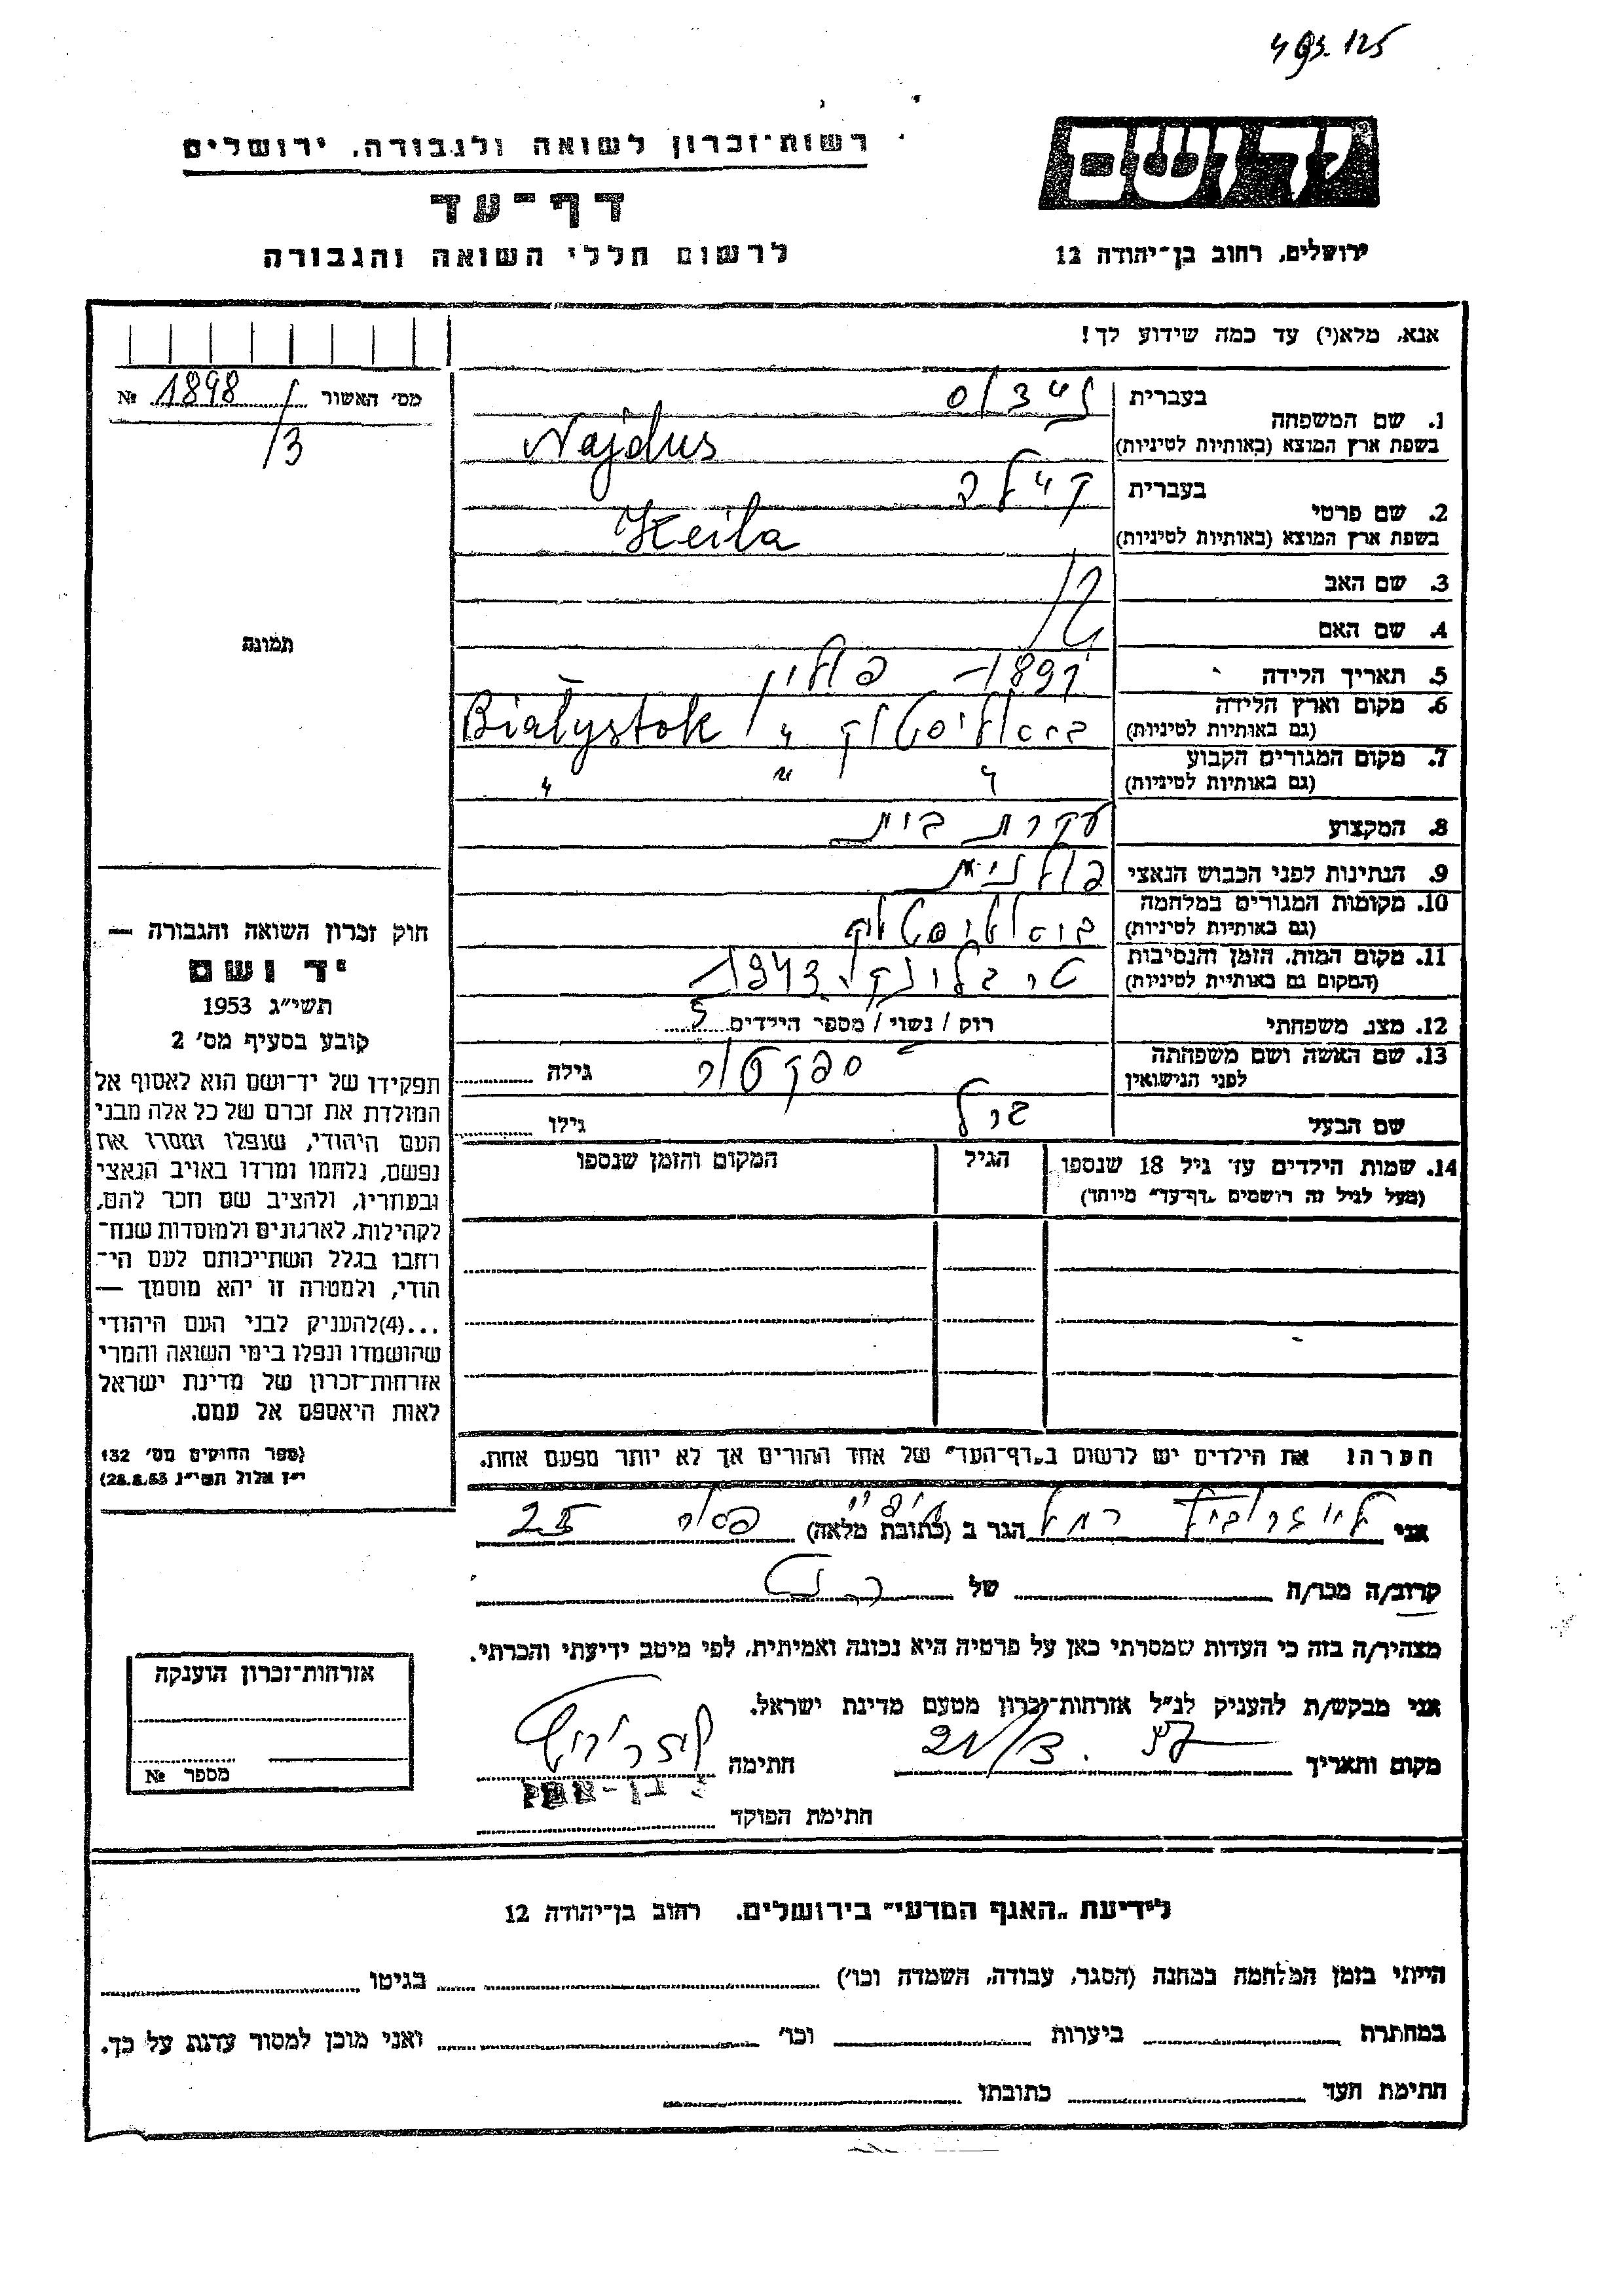 רשות־זכרון לשואה ולגבורה, ירושלים
דף־עד
לרשום חללי השואה והגבורה
יד ושם
ירושלים, רחוב בן־יהודה 12
אנא, מלא(י) עד כמה שידוע לך!
מס׳ האשור 1898 №
/3
1. שם המשפחה
בעברית נידוס
בשפת ארץ המוצא (באותיות לטיניות) Najdus
2. שם פרטי
בעברית קילה
בשפת ארץ המוצא (באותיות לטיניות) Keila
3. שם האב
4. שם האם
5. תאריך הלידה 1891 פולין
6. מקום וארץ הלידה
(גם באותיות לטיניות) ביאליסטוק Białystok
7. מקום המגורים הקבוע
(גם באותיות לטיניות) " " "
8. המקצוע עקרת בית
9. הנתינות לפני הכבוש הנאצי פולנית
10. מקומות המגורים במלחמה
(גם באותיות לטיניות) ביאליסטוק
11. מקום המות, הזמן והנסיבות
(המקום גם באותיות לטיניות) טרבלינקי 1943
12. מצב משפחתי רוק / נשוי / מספר הילדים 5
13. שם האשה ושם משפחתה
לפני הנישואין ספקטור גילה
שם הבעל גילו
14. שמות הילדים עד גיל 18 שנספו
(מעל לגיל זה רושמים „דף־עד״ מיוחד)
הגיל
המקום והזמן שנספו
הערה! את הילדים יש לרשום ב„דף־העד״ של אחד ההורים אך לא יותר מפעם אחת.
תמונה
חוק זכרון השואה והגבורה —
יד ושם
תשי״ג 1953
קובע בסעיף מס׳ 2
תפקידו של יד־ושם הוא לאסוף אל
המולדת את זכרם של כל אלה מבני
העם היהודי, שנפלו ומסרו את
נפשם, נלחמו ומרדו באויב הנאצי
ובעוזריו, ולהציב שם וזכר להם,
לקהילות, לארגונים ולמוסדות שנח־
רחבו בגלל השתייכותם לעם הי־
הודי, ולמטרה זו יהא מוסמך —
...(4)להעניק לבני העם היהודי
שהושמדו ונפלו בימי השואה והמרי
אזרחות־זכרון של מדינת ישראל
לאות היאספם אל עמם.
(ספר החוקים מס׳ 132
י״ז אלול תשי״ג 28.8.53)
אני הגר ב (כתובת מלאה) חיפה
קרוב/ה מכר/ה של
מצהיר/ה בזה כי העדות שמסרתי כאן על פרטיה היא נכונה ואמיתית, לפי מיטב ידיעתי והכרתי.
אני מבקש/ת להעניק לנ״ל אזרחות־זכרון מטעם מדינת ישראל.
מקום ותאריך חתימה
חתימת הפוקד
אזרחות־זכרון הוענקה
מספר №
לידיעת „האגף המדעי״ בירושלים, רחוב בן־יהודה 12
הייתי בזמן המלחמה במחנה (הסגר, עבודה, השמדה וכו׳) בגיטו
במחתרת ביערות וכו׳ ואני מוכן למסור עדות על כך.
חתימת העד כתובתו